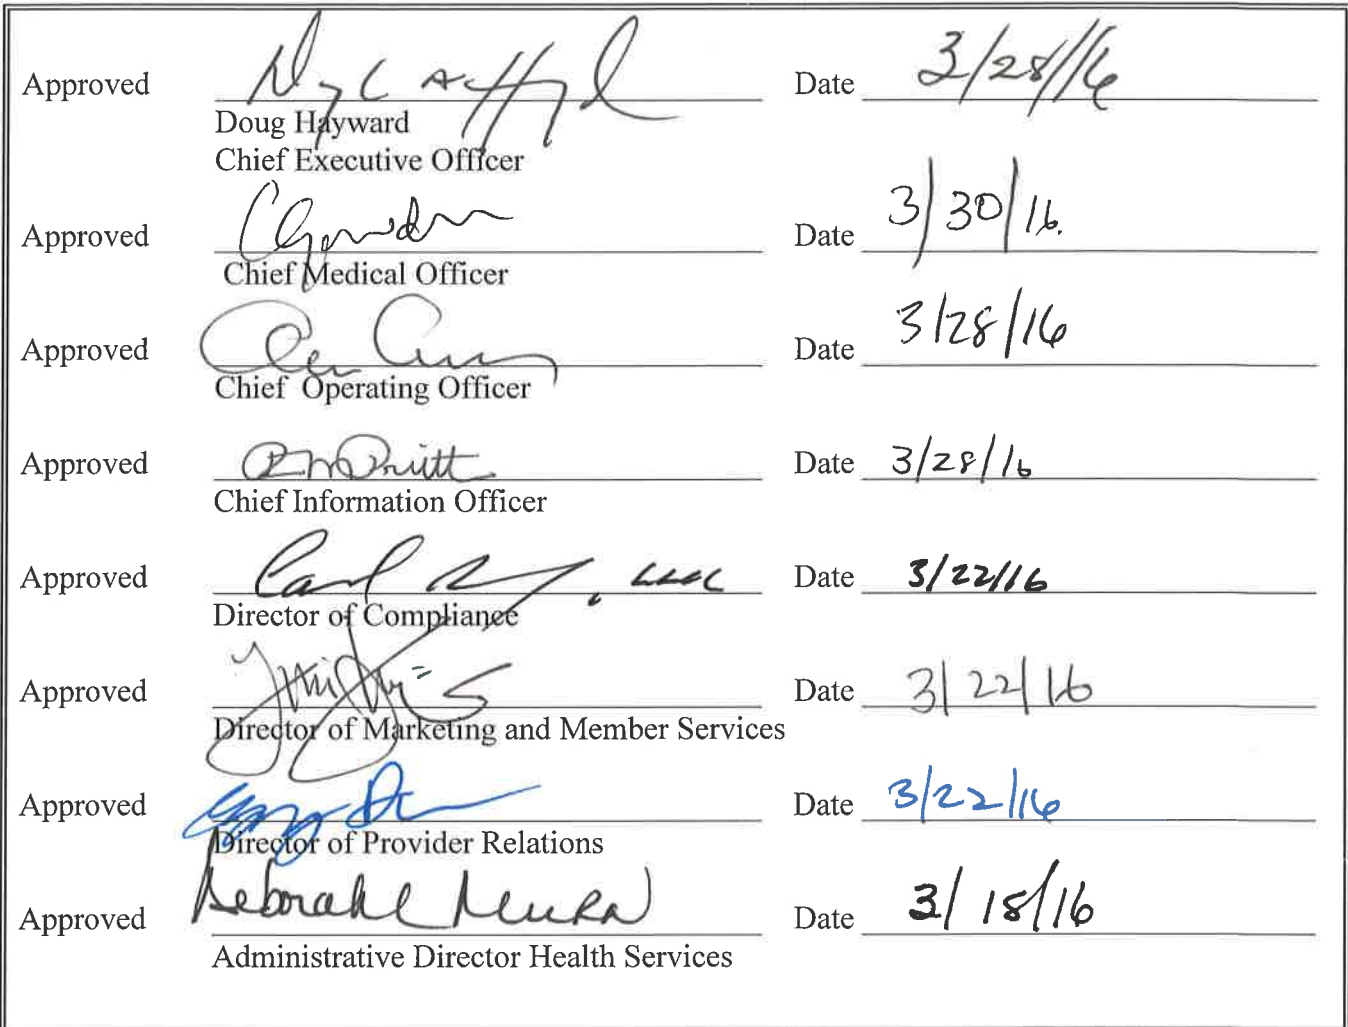 Approved Date 3/28/16
Doug Hayward
Chief Executive Officer
Approved Date 3/30/16.
Chief Medical Officer
Approved Date 3/28/16
Chief Operating Officer
Approved Date 3/28/16
Chief Information Officer
Approved Date 3/22/16
Director of Compliance
Approved Date 3/22/16
Director of Marketing and Member Services
Approved Date 3/22/16
Director of Provider Relations
Approved Deborah Date 3/18/16
Administrative Director Health Services